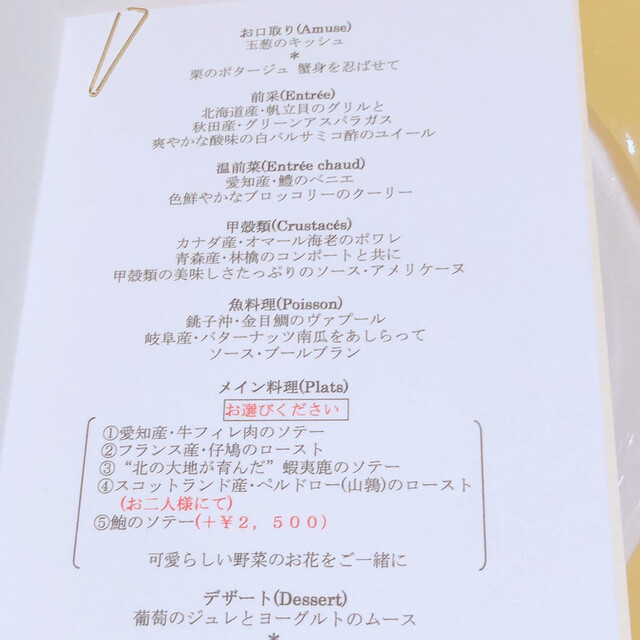 お口取り(Amuse)
玉葱のキッシュ
*
栗のポタージュ 蟹身を忍ばせて
前采(Entrée)
北海道産・帆立貝のグリルと
秋田産・グリーンアスパラガス
爽やかな酸味の白バルサミコ酢のユイール
温前菜(Entrée chaud)
愛知産・鱧のベニエ
色鮮やかなブロッコリーのクーリー
甲殻類(Crustacés)
カナダ産・オマール海老のポワレ
青森産・林檎のコンポートと共に
甲殻類の美味しさたっぷりのソース・アメリケーヌ
魚料理(Poisson)
銚子沖・金目鯛のヴァプール
岐阜産・バターナッツ南瓜をあしらって
ソース・ブールブラン
メイン料理(Plats)
お選びください
①愛知産・牛フィレ肉のソテー
②フランス産・仔鳩のロースト
③“北の大地が育んだ”蝦夷鹿のソテー
④スコットランド産・ペルドロー(山鶉)のロースト
(お二人様にて)
⑤鮑のソテー(＋￥２，５００)
可愛らしい野菜のお花をご一緒に
デザート(Dessert)
葡萄のジュレとヨーグルトのムース
*